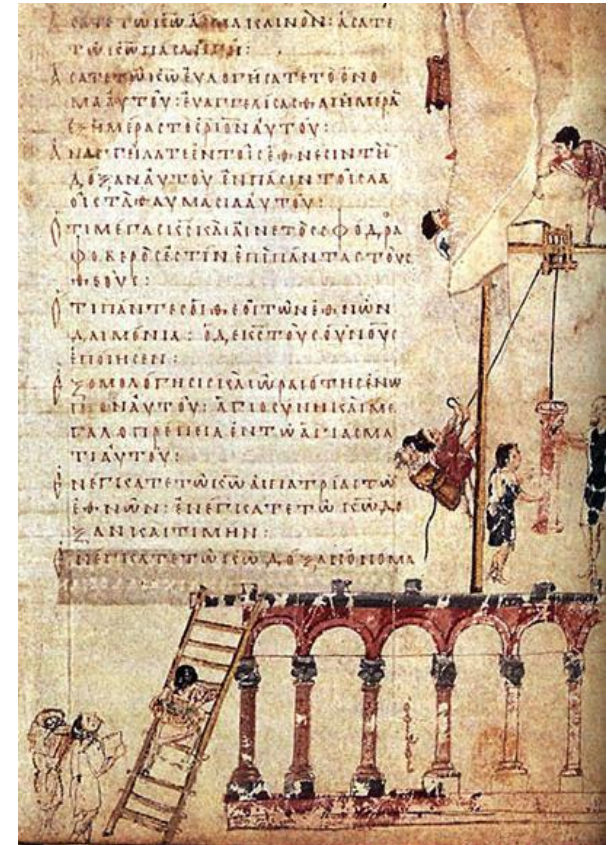 ΑϹΑΤΕ ΤΩ ΚΩ ΑϹΜΑ ΚΑΙΝΟΝ: ΑϹΑΤΕ
ΤΩ ΚΩ ΠΑϹΑ Η ΓΗ:
ΑϹΑΤΕ ΤΩ ΚΩ ΕΥΛΟΓΗϹΑΤΕ ΤΟ ΟΝΟ
ΜΑ ΑΥΤΟΥ: ΕΥΑΓΓΕΛΙϹΑϹΘΑΙ ΗΜΕΡΑ
ΕΞ ΗΜΕΡΑϹ ΤΟ ϹΡΙΟΝ ΑΥΤΟΥ:
ΑΝΑΓΓΗΛΑΤΕ ΕΝ ΤΟΙϹ ΕΘΝΕϹΙΝ ΤΗ
ΔΟΞΑΝ ΑΥΤΟΥ ΕΝ ΠΑϹΙΝ ΤΟΙϹ ΛΑ
ΟΙϹ ΤΑ ΘΑΥΜΑϹΙΑ ΑΥΤΟΥ:
ΟΤΙ ΜΕΓΑϹ ΚϹ ΚΑΙ ΑΙΝΕΤΟϹ ϹΦΟΔΡΑ
ΦΟΒΕΡΟϹ ΕϹΤΙΝ ΕΠΙ ΠΑΝΤΑϹ ΤΟΥϹ
ΘΕΟΥϹ:
ΟΤΙ ΠΑΝΤΕϹ ΟΙ ΘΕΟΙ ΤΩΝ ΕΘΝΩΝ
ΔΑΙΜΟΝΙΑ: Ο ΔΕ ΚϹ ΤΟΥϹ ΟΥΝΟΥϹ
ΕΠΟΙΗϹΕΝ:
ΕΞΟΜΟΛΟΓΗϹΙϹ ΚΑΙ ΩΡΑΙΟΤΗϹ ΕΝΩ
ΠΙΟΝ ΑΥΤΟΥ: ΑΓΙΟϹΥΝΗ ΚΑΙ ΜΕ
ΓΑΛΟΠΡΕΠΕΙΑ ΕΝ ΤΩ ΑΓΙΑϹΜΑ
ΤΙ ΑΥΤΟΥ:
ΕΝΕΓΚΑΤΕ ΤΩ ΚΩ ΑΙ ΠΑΤΡΙΑΙ ΤΩ
ΕΘΝΩΝ: ΕΝΕΓΚΑΤΕ ΤΩ ΚΩ ΔΟ
ΞΑΝ ΚΑΙ ΤΙΜΗΝ:
ΕΝΕΓΚΑΤΕ ΤΩ ΚΩ ΔΟΞΑΝ ΟΝΟΜΑ